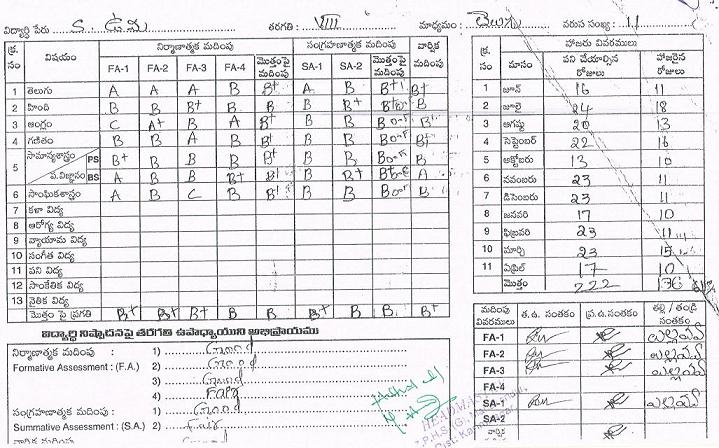 విద్యార్థి పేరు స. ఉమ తరగతి : VIII మాధ్యమం : తెలుగు వరుస సంఖ్య : 11
క్ర. సం విషయం నిర్మాణాత్మక మదింపు సంగ్రహణాత్మక మదింపు వార్షిక మదింపు
FA-1 FA-2 FA-3 FA-4 మొత్తంపై మదింపు SA-1 SA-2 మొత్తంపై మదింపు
1 తెలుగు A A A B B+ A B B+ B+
2 హింది B B B+ B B+ B B+ B
3 ఆంగ్లం C A+ B A B+ B B B
4 గణితం B B A B B+ B B B+
5 సామాన్యశాస్త్రం PS B+ B B B B+ B B B
ప.విజ్ఞానం BS A B B B+ B+ B B+ A
6 సాంఘికశాస్త్రం A B C B B+ B B B
7 కళా విద్య
8 ఆరోగ్య విద్య
9 వ్యాయామ విద్య
10 సంగీత విద్య
11 పని విద్య
12 సాంకేతిక విద్య
13 నైతిక విద్య
మొత్తం పై ప్రగతి B+ B+ B+ B B B+ B B B+
విద్యార్థి నిష్పాదనపై తరగతి ఉపాధ్యాయుని అభిప్రాయము
నిర్మాణాత్మక మదింపు : 1) Good
Formative Assessment : (F.A.) 2) Good
3) Good
4) Fair
సంగ్రహణాత్మక మదింపు : 1) Good
Summative Assessment : (S.A.) 2) Fair
వార్షిక మదింపు Good
క్ర. సం హాజరు వివరములు
మాసం పని చేయాల్సిన రోజులు హాజరైన రోజులు
1 జూన్ 16 11
2 జులై 24 18
3 ఆగష్టు 20 13
4 సెప్టెంబర్ 22 16
5 అక్టోబరు 13 10
6 నవంబరు 23 11
7 డిసెంబరు 23 11
8 జనవరి 17 10
9 ఫిబ్రవరి 23 11
10 మార్చి 23 15
11 ఏప్రిల్ 17 10
మొత్తం 222 136
మదింపు వివరములు త.ఉ. సంతకం ప్ర.ఉ.సంతకం తల్లి / తండ్రి సంతకం
FA-1 ఎల్లవ్వ
FA-2 ఎల్లవ్వ
FA-3 ఎల్లవ్వ
FA-4
SA-1 ఎల్లవ్వ
SA-2
వార్షిక
HEADMA
Z.P.H.S. (G)